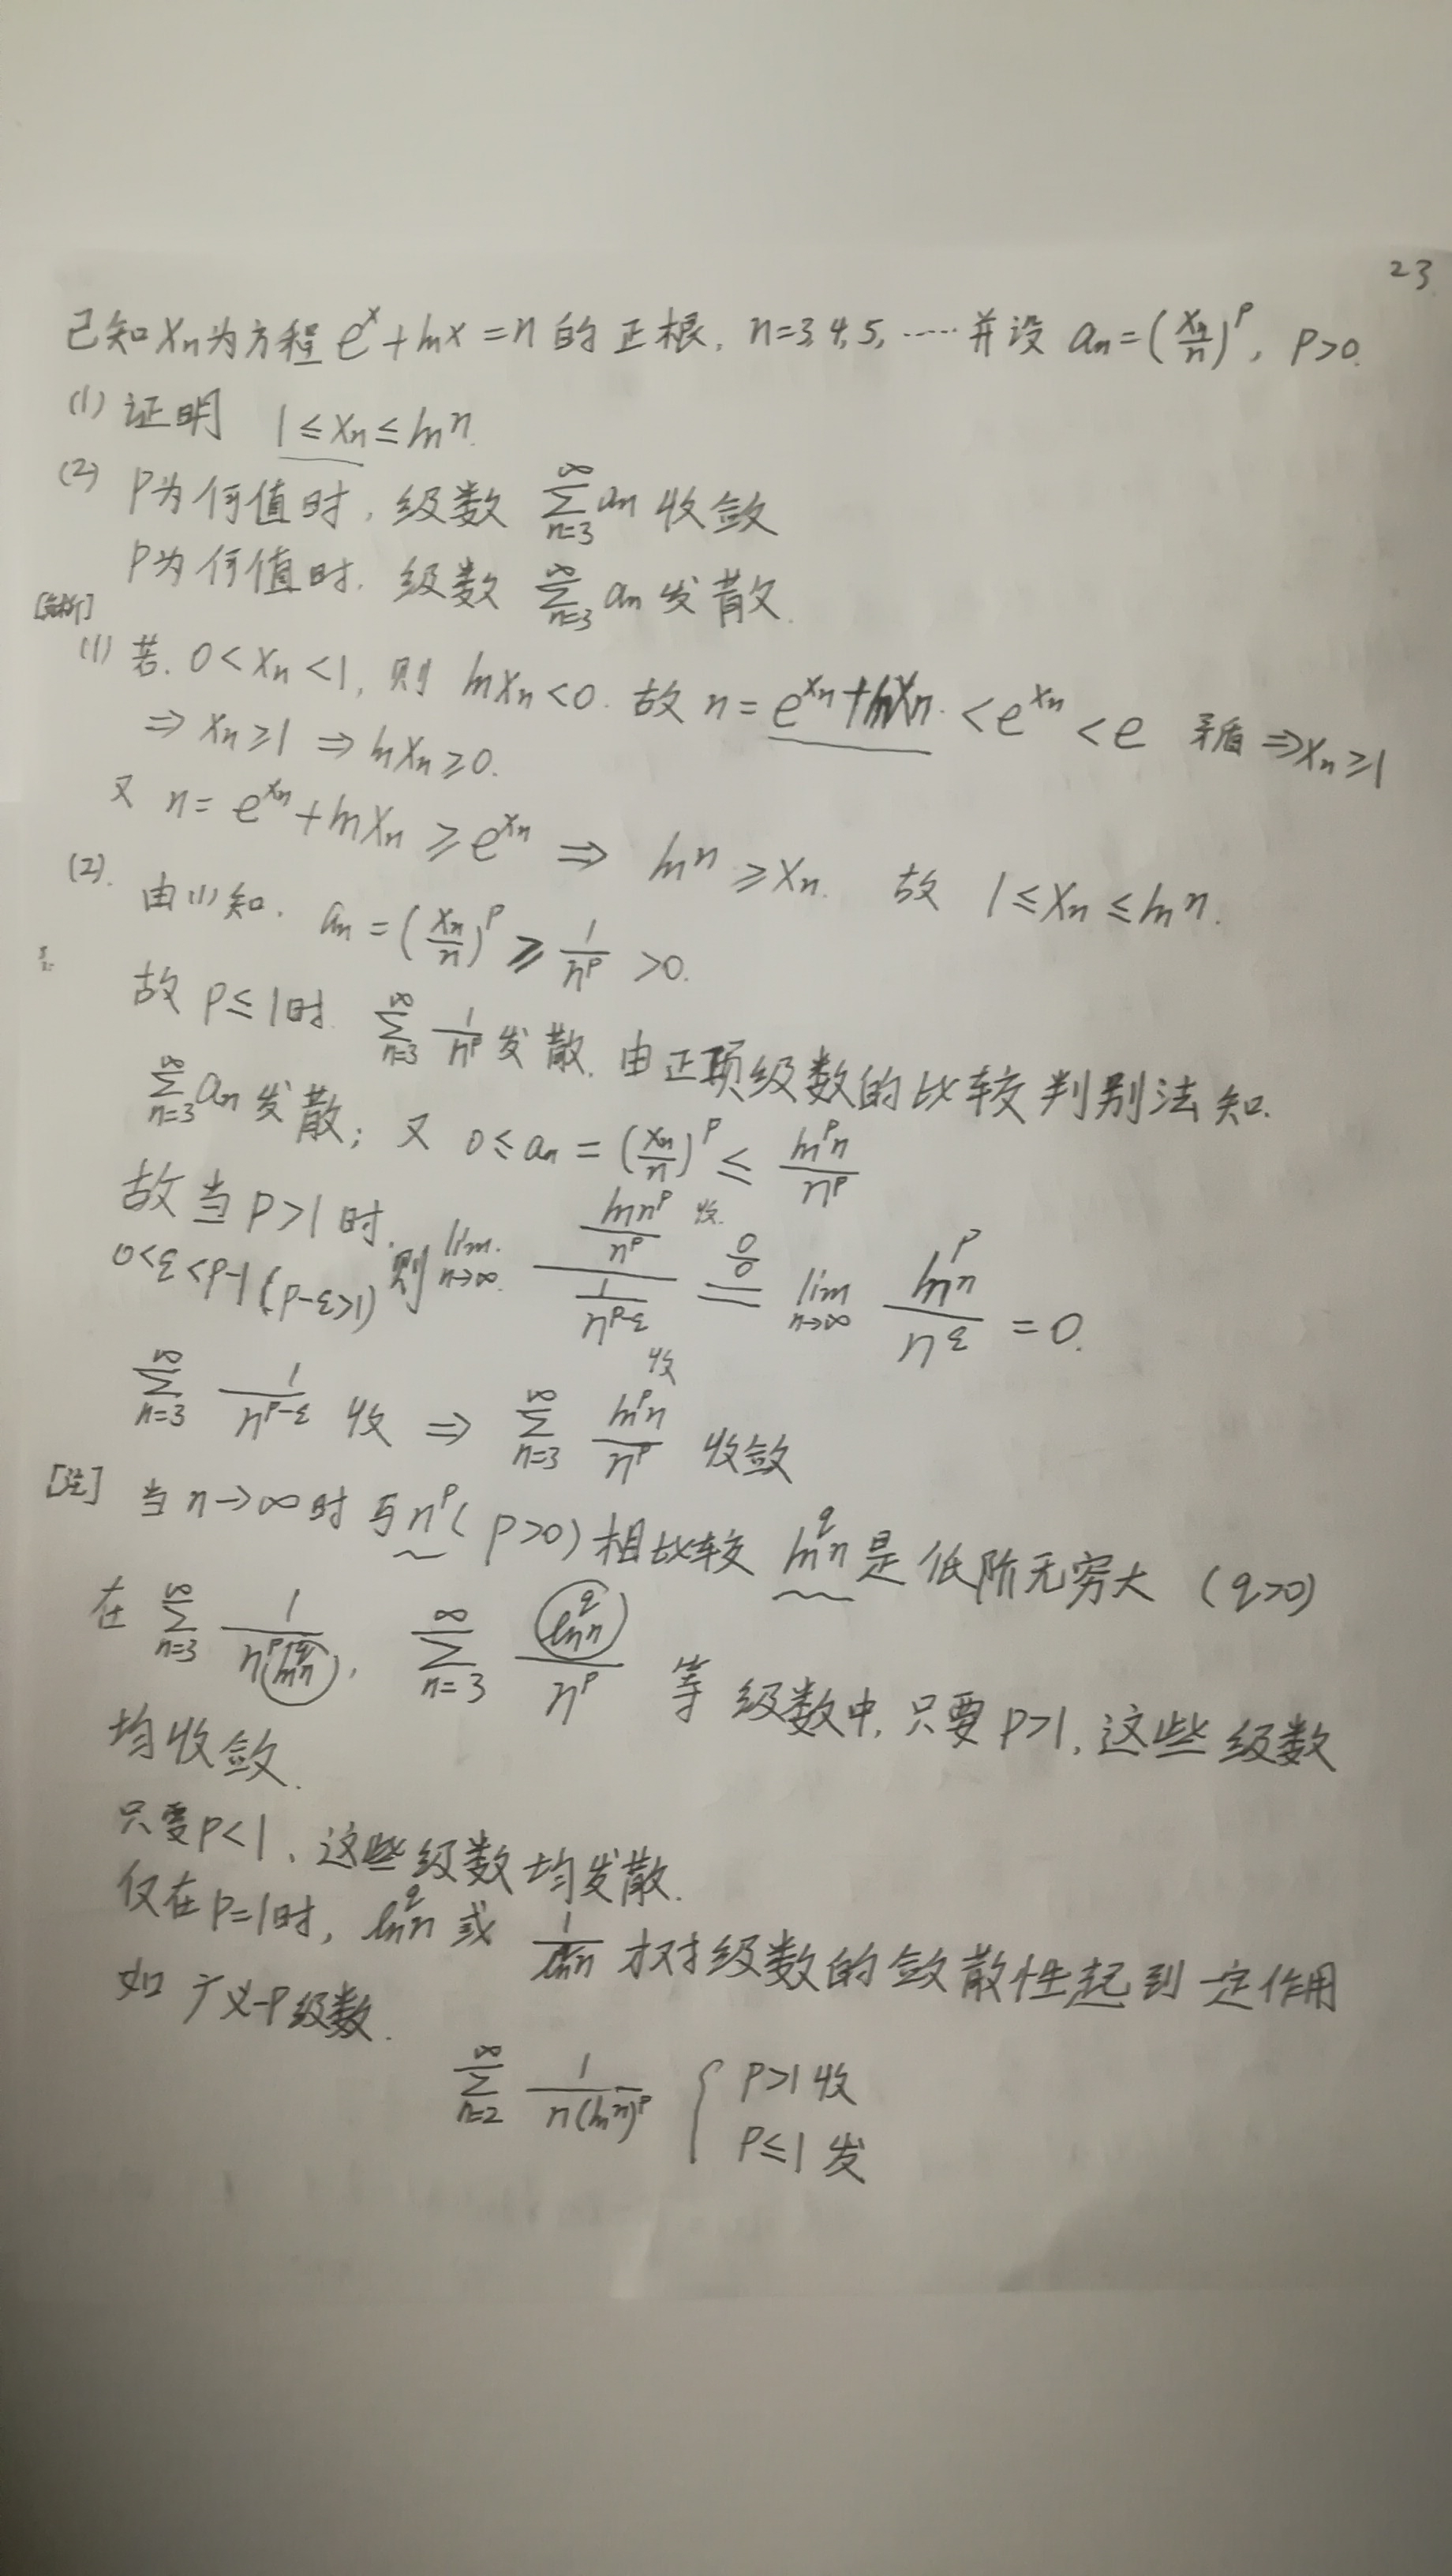 23
已知 xₙ 为方程 eˣ + ln x = n 的正根, n=3,4,5, …… 并设 aₙ = (xₙ/n)ᵖ, p>0.
(1) 证明 1 ≤ xₙ ≤ ln n.
(2) P为何值时, 级数 ∑_{n=3}^{∞} aₙ 收敛
P为何值时, 级数 ∑_{n=3}^{∞} aₙ 发散.
[解析]
(1) 若. 0 < xₙ < 1, 则 ln xₙ < 0. 故 n = e^{xₙ} + ln xₙ < e^{xₙ} < e 矛盾 ⇒ xₙ ≥ 1
⇒ xₙ ≥ 1 ⇒ ln xₙ ≥ 0.
又 n = e^{xₙ} + ln xₙ ≥ e^{xₙ} ⇒ ln n ≥ xₙ. 故 1 ≤ xₙ ≤ ln n.
(2). 由(1)知. aₙ = (xₙ/n)ᵖ ≥ 1/nᵖ > 0.
故 p ≤ 1时 ∑_{n=3}^{∞} 1/nᵖ 发散. 由正项级数的比较判别法知.
∑_{n=3}^{∞} aₙ 发散; 又 0 ≤ aₙ = (xₙ/n)ᵖ ≤ lnᵖn/nᵖ
故当 p>1 时.
0<ε<p-1 (p-ε>1) 则 lim_{n→∞} (ln nᵖ/nᵖ)/(1/n^{p-ε}) 收 =(0/0) lim_{n→∞} lnᵖn/n^ε = 0.
∑_{n=3}^{∞} 1/n^{p-ε} 收 ⇒ ∑_{n=3}^{∞} lnᵖn/nᵖ 收敛 收
[注] 当 n→∞ 时 与 nᵖ (p>0) 相比较 ln^q n 是低阶无穷大 (q>0)
在 ∑_{n=3}^{∞} 1/(nᵖ ln^q n), ∑_{n=3}^{∞} ln^q n/nᵖ 等级数中, 只要 p>1, 这些级数
均收敛.
只要 p<1, 这些级数均发散.
仅在 p=1时, ln^q n 或 1/ln^q n 才对级数的敛散性起到一定作用
如广义-P级数.
∑_{n=2}^{∞} 1/(n(ln n)ᵖ) { p>1 收
p≤1 发